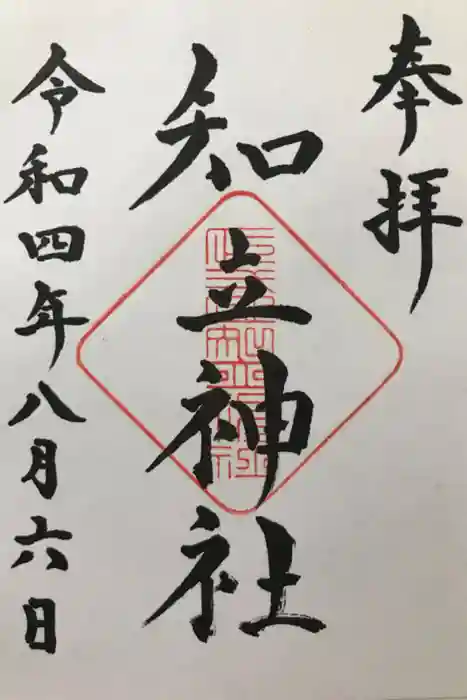 奉拝
知立神社
令和四年八月六日